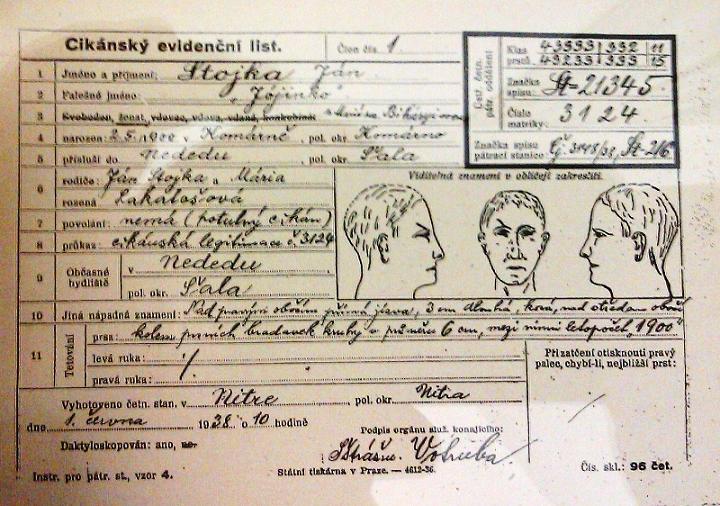 Cikánský evidenční list.
Člen čís. 1
Ústř. četn. pátr. oddělení
Klas prstů: 43333 | 332 | 11
49233 | 333 | 15
Značka spisu: St-21345
Číslo matriky: 3124
Značka spisu pátrací stanice: Čj. 3148/38, St-216
1 Jméno a příjmení: Stojka Ján
2 Falešné jméno: „Jójinko"
3 Svobodný, ženat, vdovec, vdova, vdaná, konkubinát
4 narozen: 2.5.1900 v Komárně, pol. okr. Komárno
5 přísluší do Nededu pol. okr. Šala
6 rodiče: Ján Stojka a Mária
rozená Lakatošová
7 povolání: nemá (potulný cikán)
8 průkaz: cikánská legitimace č. 3124
9 Občasné bydliště v Nededu
pol. okr. Šala
Viditelná znamení v obličeji zakresliti.
10 Jiná nápadná znamení: Nad pravým obočím příčná jizva, 3 cm dlouhá,
11 Tetování
prsa: kolem prsních bradavek kruhy v průměru 6 cm, mezi nimi letopočet „1900"
levá ruka: /.
pravá ruka:
Při zatčení otisknouti pravý palec, chybí-li, nejbližší prst:
Vyhotoveno četn. stan. v Nitre pol. okr. Nitra
dne 1. června 1938 o 10 hodině
Podpis orgánu služ. konajícího:
Daktyloskopován: ano, ne.
Strážm. Votruba
Instr. pro pátr. st., vzor 4.
Státní tiskárna v Praze. — 4612-36.
Čís. skl.: 96 čet.